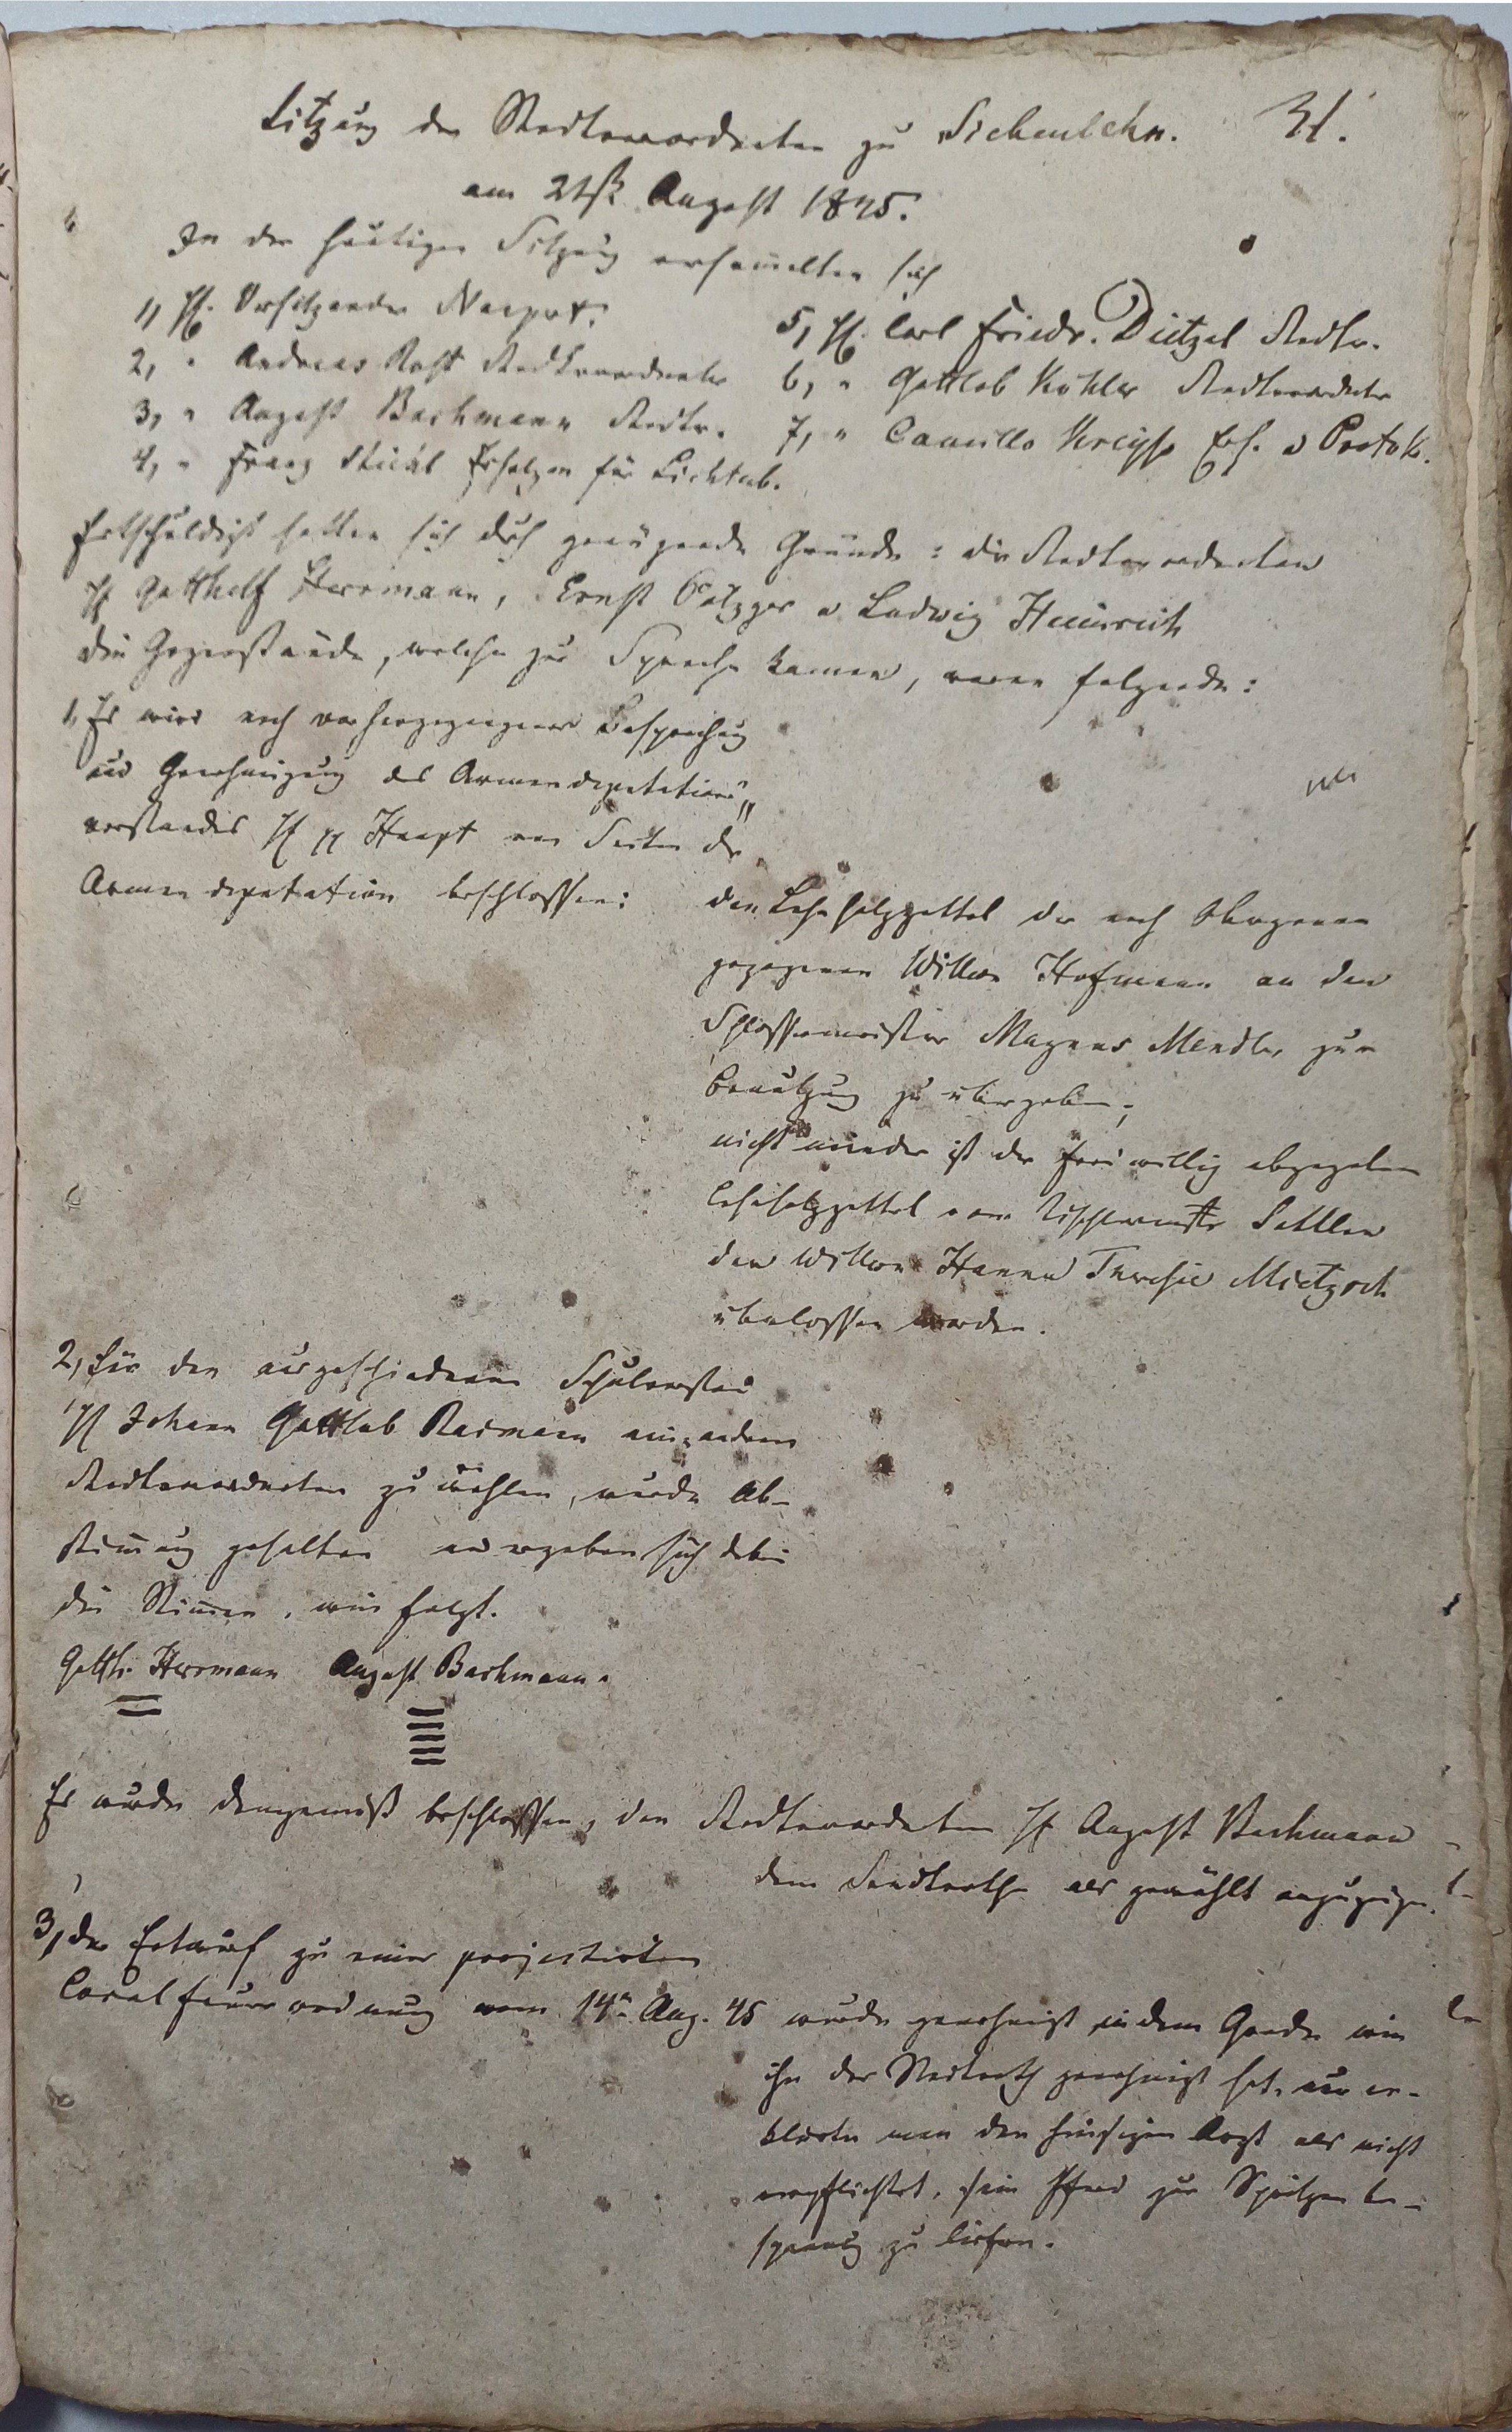 Sitzung der Stadtverordneten zu Siebenlehn. 31.
am 21st. August 1845.
In der heutigen Sitzung versam̄elten sich
1, H. Vorsitzender
2, " Andreas Rost Stadtverordneter
3, " August Bachmann Stadtv.
4, " Franz Ersatzm für Lichtenb.
5, H. Carl Friedr. Dietzel Stadtv.
6, " Gottlob Köhler Stadtverordneter
7, " Camillo Kreyß Ers. u Protok.
Entschuldigt hatten sich durch genügende Gründe: die Stadtverordneten
H Gotthelf Herrmann, Ernst u Ludwig Heinrich
Die Gegenstände, welche zur Sprache kamen, waren folgende:
1, Es wird nach vorhergegangener Besprechung
und Genehmigung des Armendeputations„
vorstandes H Haupt von Seiten der
Armendeputation beschlossen:
den Lesholzzettel der nach
gezogenen Wittwe Hofmann an den
Schlossermeister Magnus Mendler zur
Benutzung zu übergeben;
nicht minder ist der freiwillig abgegebene
Leseholzzettel vom Tischlermstr Sattler
der Wittwe Hanne Theresie Mietzsch
überlassen worden.
2, Für den ausgeschiedenen Schulvorstand
H Johann Gottlob Reimann einen andern
Stadtverordneten zu wählen, wurde Ab-
stim̄ung gehalten und ergeben sich dabei
die Stim̄en, wie folgt.
Gotth. Herrmann August Bachmann.
Es wurde demgemäß beschlossen, den Stadtverordneten H August Bachmann
dem Stadtrathe als gewählt anzuzeigen.
3, Der Entwurf zu einer projectirten
Localfeuerordnung vom 14n Aug. 45 wurde genehmigt in dem Grade wie
ihn der Stadtrath genehmigt hat, nur er-
klärte man den hiesigen Arzt als nicht
verpflichtet, sein Pferd zur Spritzenbe-
spannung zu liefern.